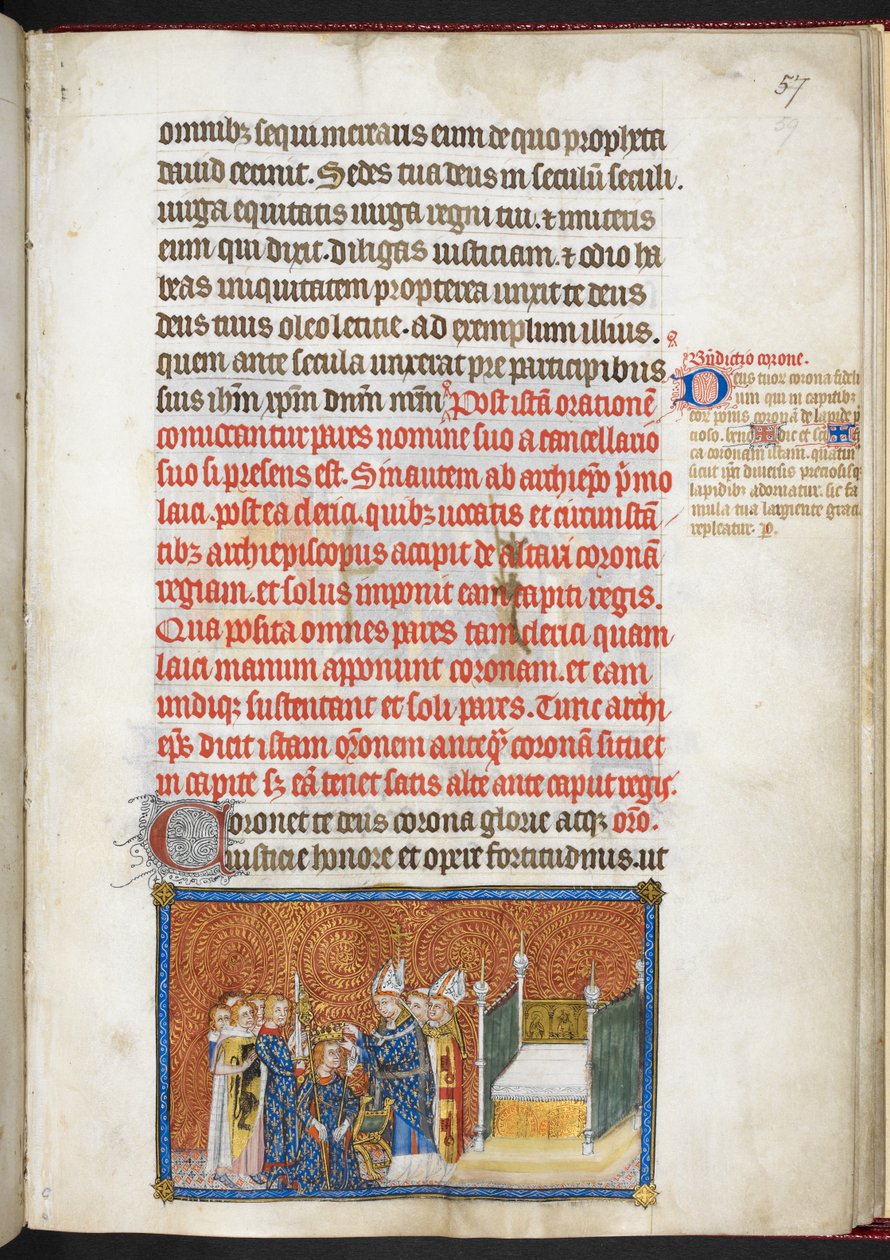 57
59
omnibȝ sequi mereatis eum de quo propheta
dauid cecinit. Sedes tua deus in seculū seculi.
uirga equitatis uirga regni tui. ⁊ imiteris
eum qui dixit. diligas iusticiam. ⁊ odio ha
beas iniquitatem propterea unxit te deus
deus tuus oleo leticie. ad exemplum illius.
quem ante secula unxerat pre participibus
suis ihm̄ xpm̄ dnm̄ nrm̄ Post istā orationē
conuocantur pares nomine suo a cancellario
suo si presens est. Sin autem ab archiepō p̄mo
laici. postea clerici. quibȝ uocatis et circumstā
tibȝ archiepiscopus accipit de altari coronā
regiam. et solus imponit eam capiti regis.
Qua posita omnes pares tam clerici quam
laici manum apponunt coronam. et eam
undiqȝ sustentant et soli pares. Tunc archi
ep̄s dicit istam orōnem anteq̄ coronā situet
in capite sȝ eā tenet satis alte ante caput regis.
Coronet te deus corona glorie atqȝ orō.
iusticie honore et opere fortitudinis. ut
Bn̄dictio corone.
Deus tuor corona fideli
um qui in capitibȝ
eor ponis coronā de lapide p
cioso. bene✠dic et scī✠fi
ca coronam istam. quatin
sicut ip̄a diuersis preciosisqȝ
lapidibȝ adornatur. sic fa
mula tua largiente graci
repleatur. p̄.